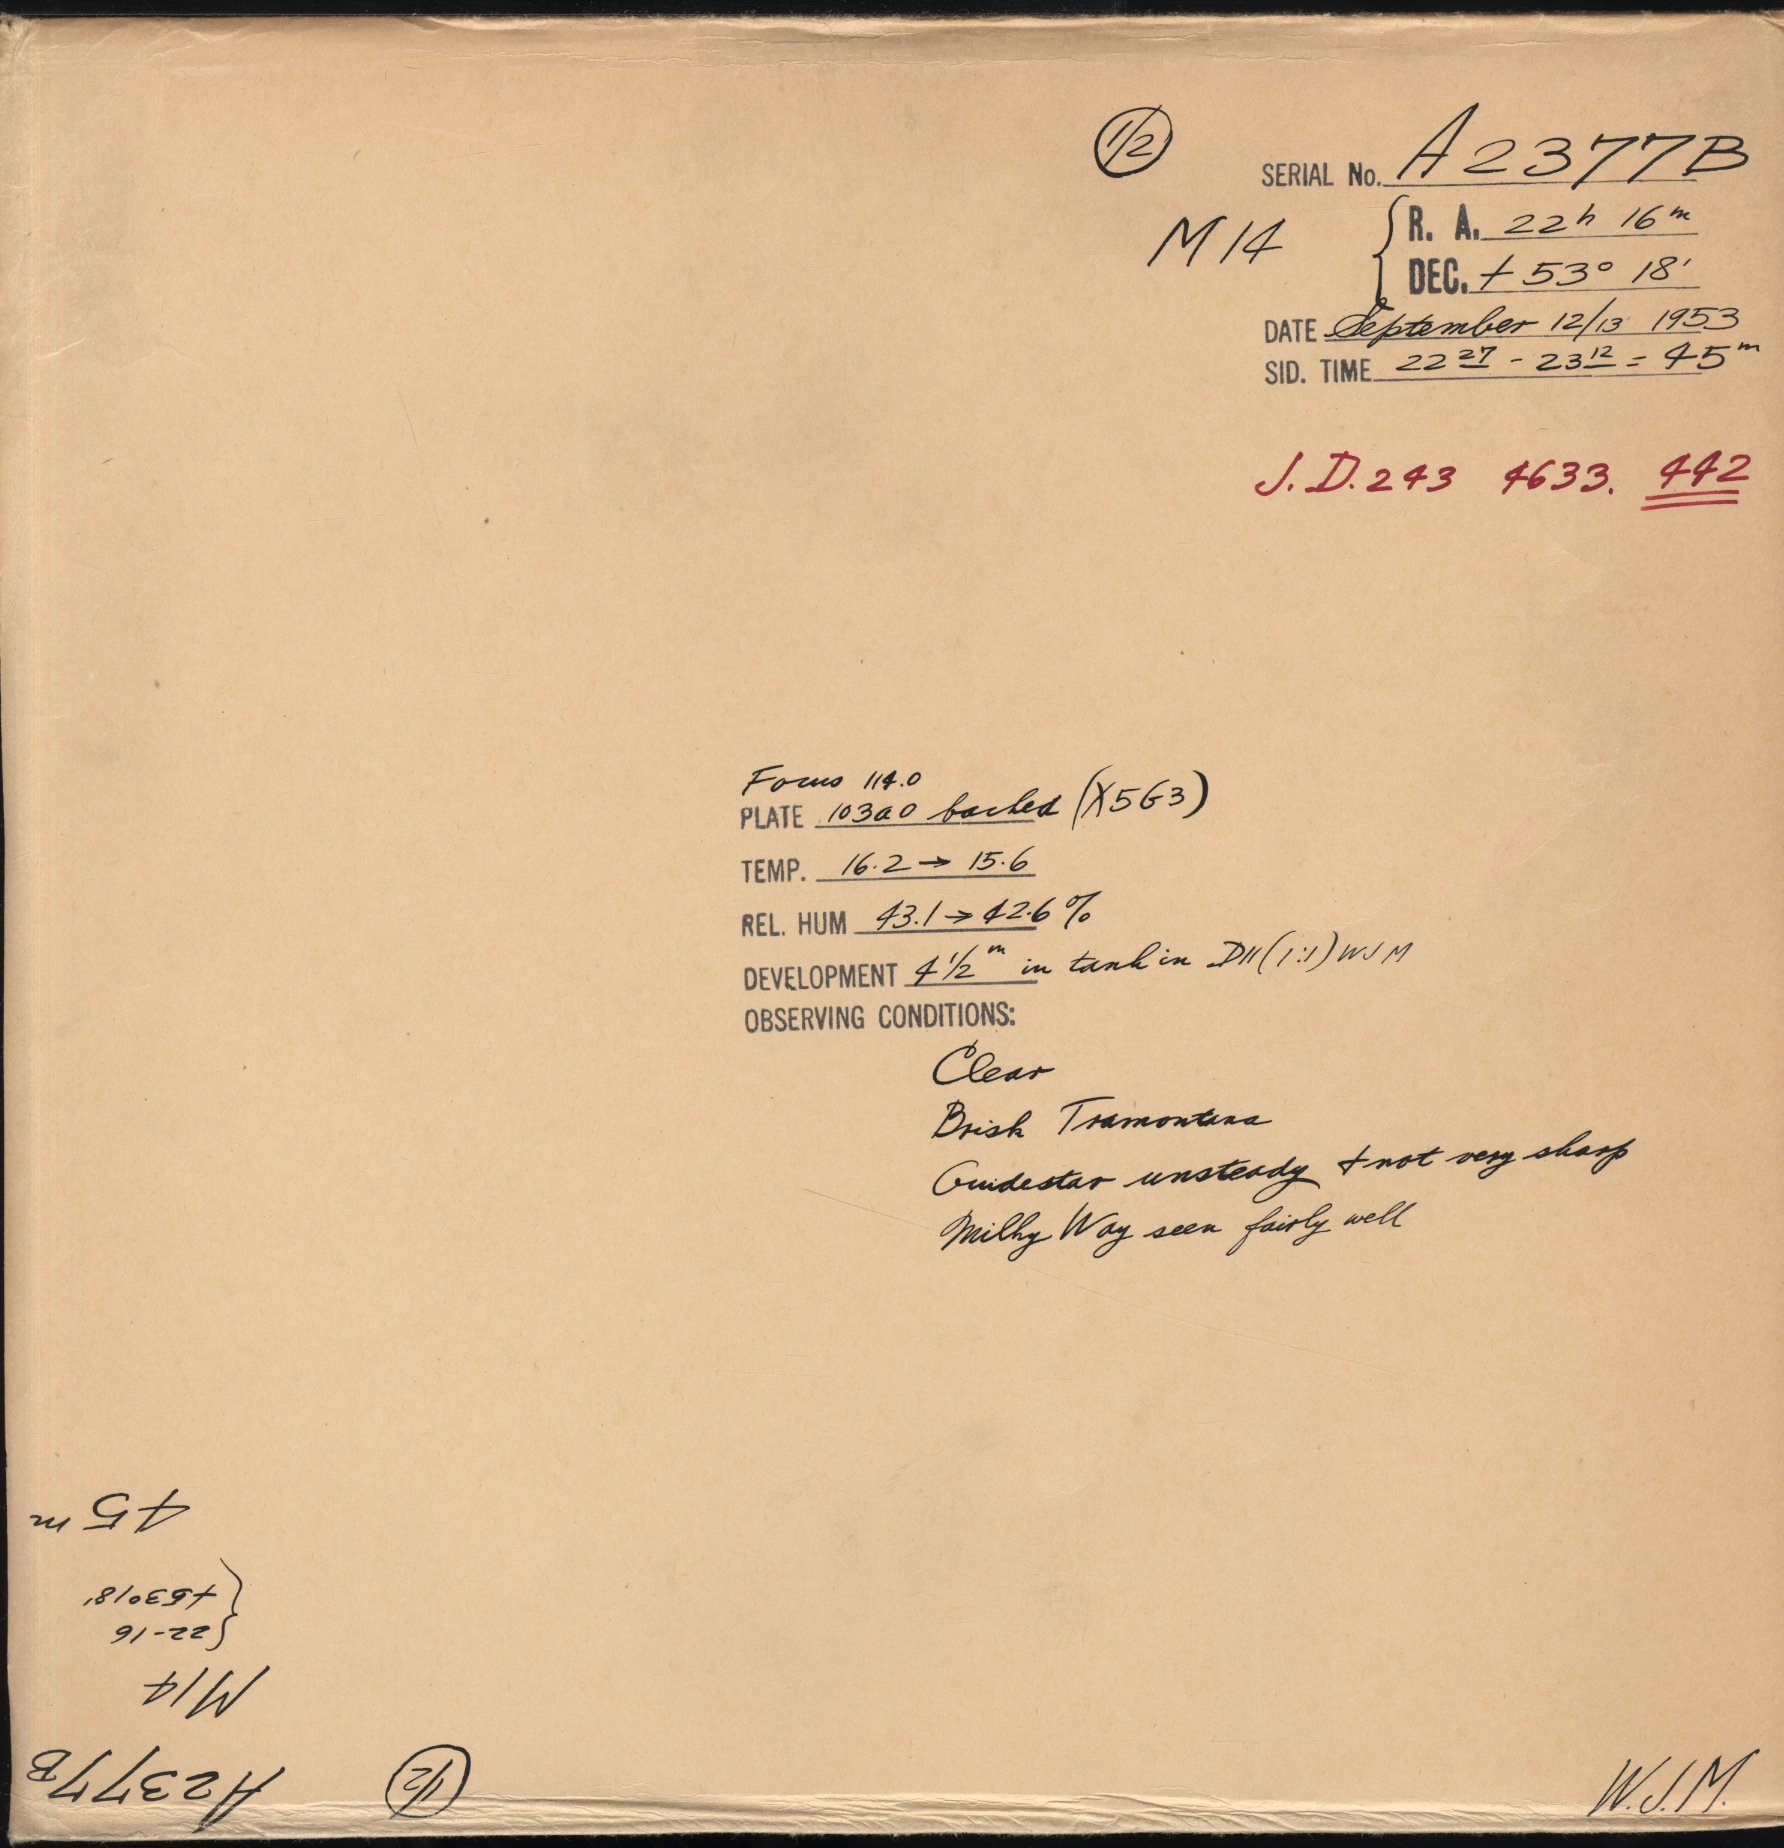 1/2
SERIAL No. A2377B
M14
R. A. 22h 16m
DEC. + 53° 18'
DATE September 12/13 1953
SID. TIME 22 27 - 23 12 = 45m
J.D. 243 4633. 442
Focus 114.0
PLATE 103a0 backed (X5G3)
TEMP. 16.2 → 15.6
REL. HUM 43.1 → 42.6 %
DEVELOPMENT 4 1/2 m in tank in D11 (1:1) WJM
OBSERVING CONDITIONS:
Clear
Brisk Tramontana
Guidestar unsteady + not very sharp
Milky Way seen fairly well
45m
+53°18'
22-16
M14
A2377B
1/2
W.J.M.